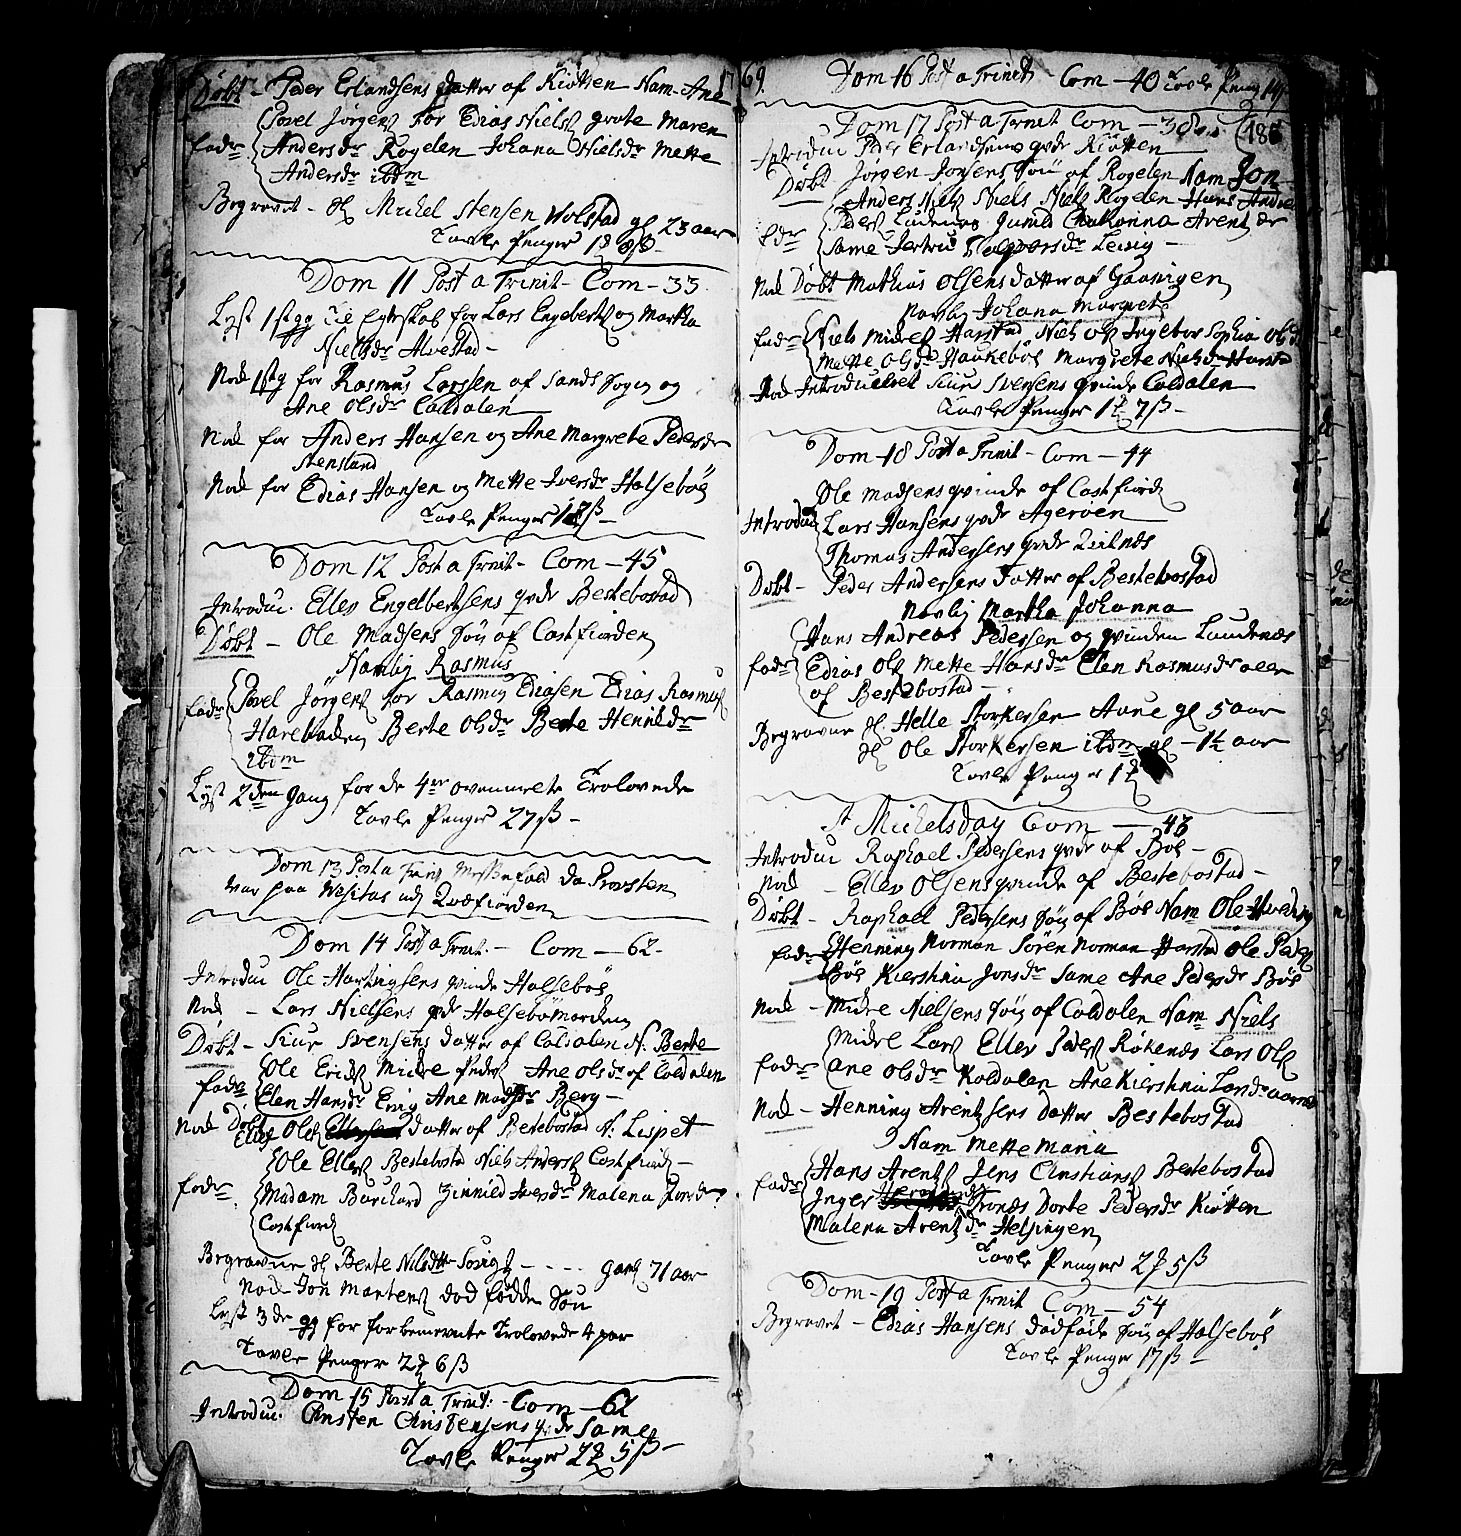 1769.
Døbt - Peder Erlandsens datter af Kiøtten Nam. Ane
Povel Jørgens for Edias Niels grote Maren
fadr Andersdr Rogelen Johana Nielsdr Mette
Andersdr ibdm
Begravet - Michel Stensen Wolstad gl 23 aar
Tavle Penger
Dom 11 Post a Trinit - Com - 33
Lyst 1ste gg til Egteskab for Lars Engebertz og Martha
Nielsdr Alvestad -
Nok 1ste g for Rasmus Larssen af Sands Sogn og
Ane Olsdr Coldalen
Nok for Anders Hansen og Ane Margrete Pedersdr
Stensland
Nok for Edias Hansen og Mette Iversdr Halsebøe
Tavle Penger
Dom 12 Post a Trinit - Com - 45
Introduc. Ellev Engelbertsens qvde Bestebostad
Døbt - Ole Madsens Søn af Costfiorden
Namlig Rasmus
Povel Jørgens for Rasmus Ediasen Edias Rasmus
fadr Harebaden Berte Olsdr Berte Henrikdr
ibdm
Lyst 2den gang for de 4re ovenmelte Trolovede
Tavle Penger 27 ß -
Dom 13 Post a Trinit Messefald da Provsten
var paa Visitas udj Qvæfiorden
Dom 14 Post a Trinit. - Com - 62 -
Introduc Ole Hartvigsens qvinde Halsebøe
Nok - Lars Nielsens qvde Halsebømarken
Døbt - Siur Svensens datter af Coldalen N. Berte
Ole Erichs Midre Peders Ane Olsdr af Coldalen
fadr Elen Hansdr Ervig Ane Madsdr Berg -
Nok Døbt Ellev Ols datter af Bestebostad N. Lispet
Ole Ellevs Bestebostad Niels Anders Costfiord -
fadr Madam Borchard Zinnild Iversdr Malena Jonsdr
Costfiord
Begravne Berte Nilsdtter Sørvig - - - - gaml 71 aar
Nok Jon Mortens død fødde Søn
Lyst 3de gg for forbenevnte Trolovede 4 par
Tavle Penger 2 6 ß
Dom 15 Post a Trinit: - Com - 62
Introduc. Christen Christensens qvde Same
Tavle Penger 2 5 ß -
Dom 16 Post a Trinit - Com - 40 Tavle Peng
Dom 17 Post a Trinit Com - 38
Introduc Peder Erlandsens qvde Kiøtten
Døbt Jørgen Jonsens Søn af Rogelen Nam Jon
Anders Niels Niels Niels Rogelen Hans Andre
fadr Peders Laudenæs Gunild Arentzdr
Same Jertru Leivig -
Nok Døbt Mathias Olsens datter af Gaasvigen
Navlig Johana Margrete
fadr Niels Midres Harstad Niels Ols Ingebor Sophia Olsd
Mette Olsdr Haukebøe Margrete Nielsdr Harstad
Nok Introduceret Siur Svensens qvinde Coldalen
Tavle Penger 1 7 ß -
Dom 18 Post a Trinit - Com - 44
Ole Madsens qvinde af Costfiord
Introduc Lars Hansens qvde Ageroen
Thomas Andersens qvde
Døbt - Peder Andersens datter af Bestebostad
Navlig Martha Johanna
Hans Andreas Pedersen og qvinden Laudenæs
fadr Edias Ols Mette Hansdr Elen Rasmusdr alle
af Bestebostad -
Begravne Helle Storkersen Aune gl 5 aar
Ole Storkersen ibdm gl - 1½ aar
Tavle Penger 1
St Michelsday Com - 43
Introduc Raphael Pedersens qvde af Bøe -
Nok - Ellev Olsens qvinde af Bestebostad -
Døbt - Raphael Pedersens Søn af Bøe Nam Ole
fadr Henning Norman Søren Norman Harstad Ole Peders
Bøe Kierstina Jonsdr Same Ane Pedersdr Bøe
Nok - Midre Nielsens Søn af Coldalen Nam Niels
Midre Lars Ellev Peders Røkenæs Lars Ols
fadr Ane Olsdr Koldalen Ane Kierstina
Nok - Henning Arentzsens datter Bestebostad
Nam Mette Maria
Hans Arentz Jens Christians Bestebostad
fadr Inger Tronds Dorte Pedersdr Kiøtten
Malena Arentzdr Helsingen
Tavle Penger 2 5 ß
Dom - 19 Post a Trinit Com - 54
Begravet - Edias Hansens dødføde Søn af Halsebøe
Tavle Penger 17 ß -